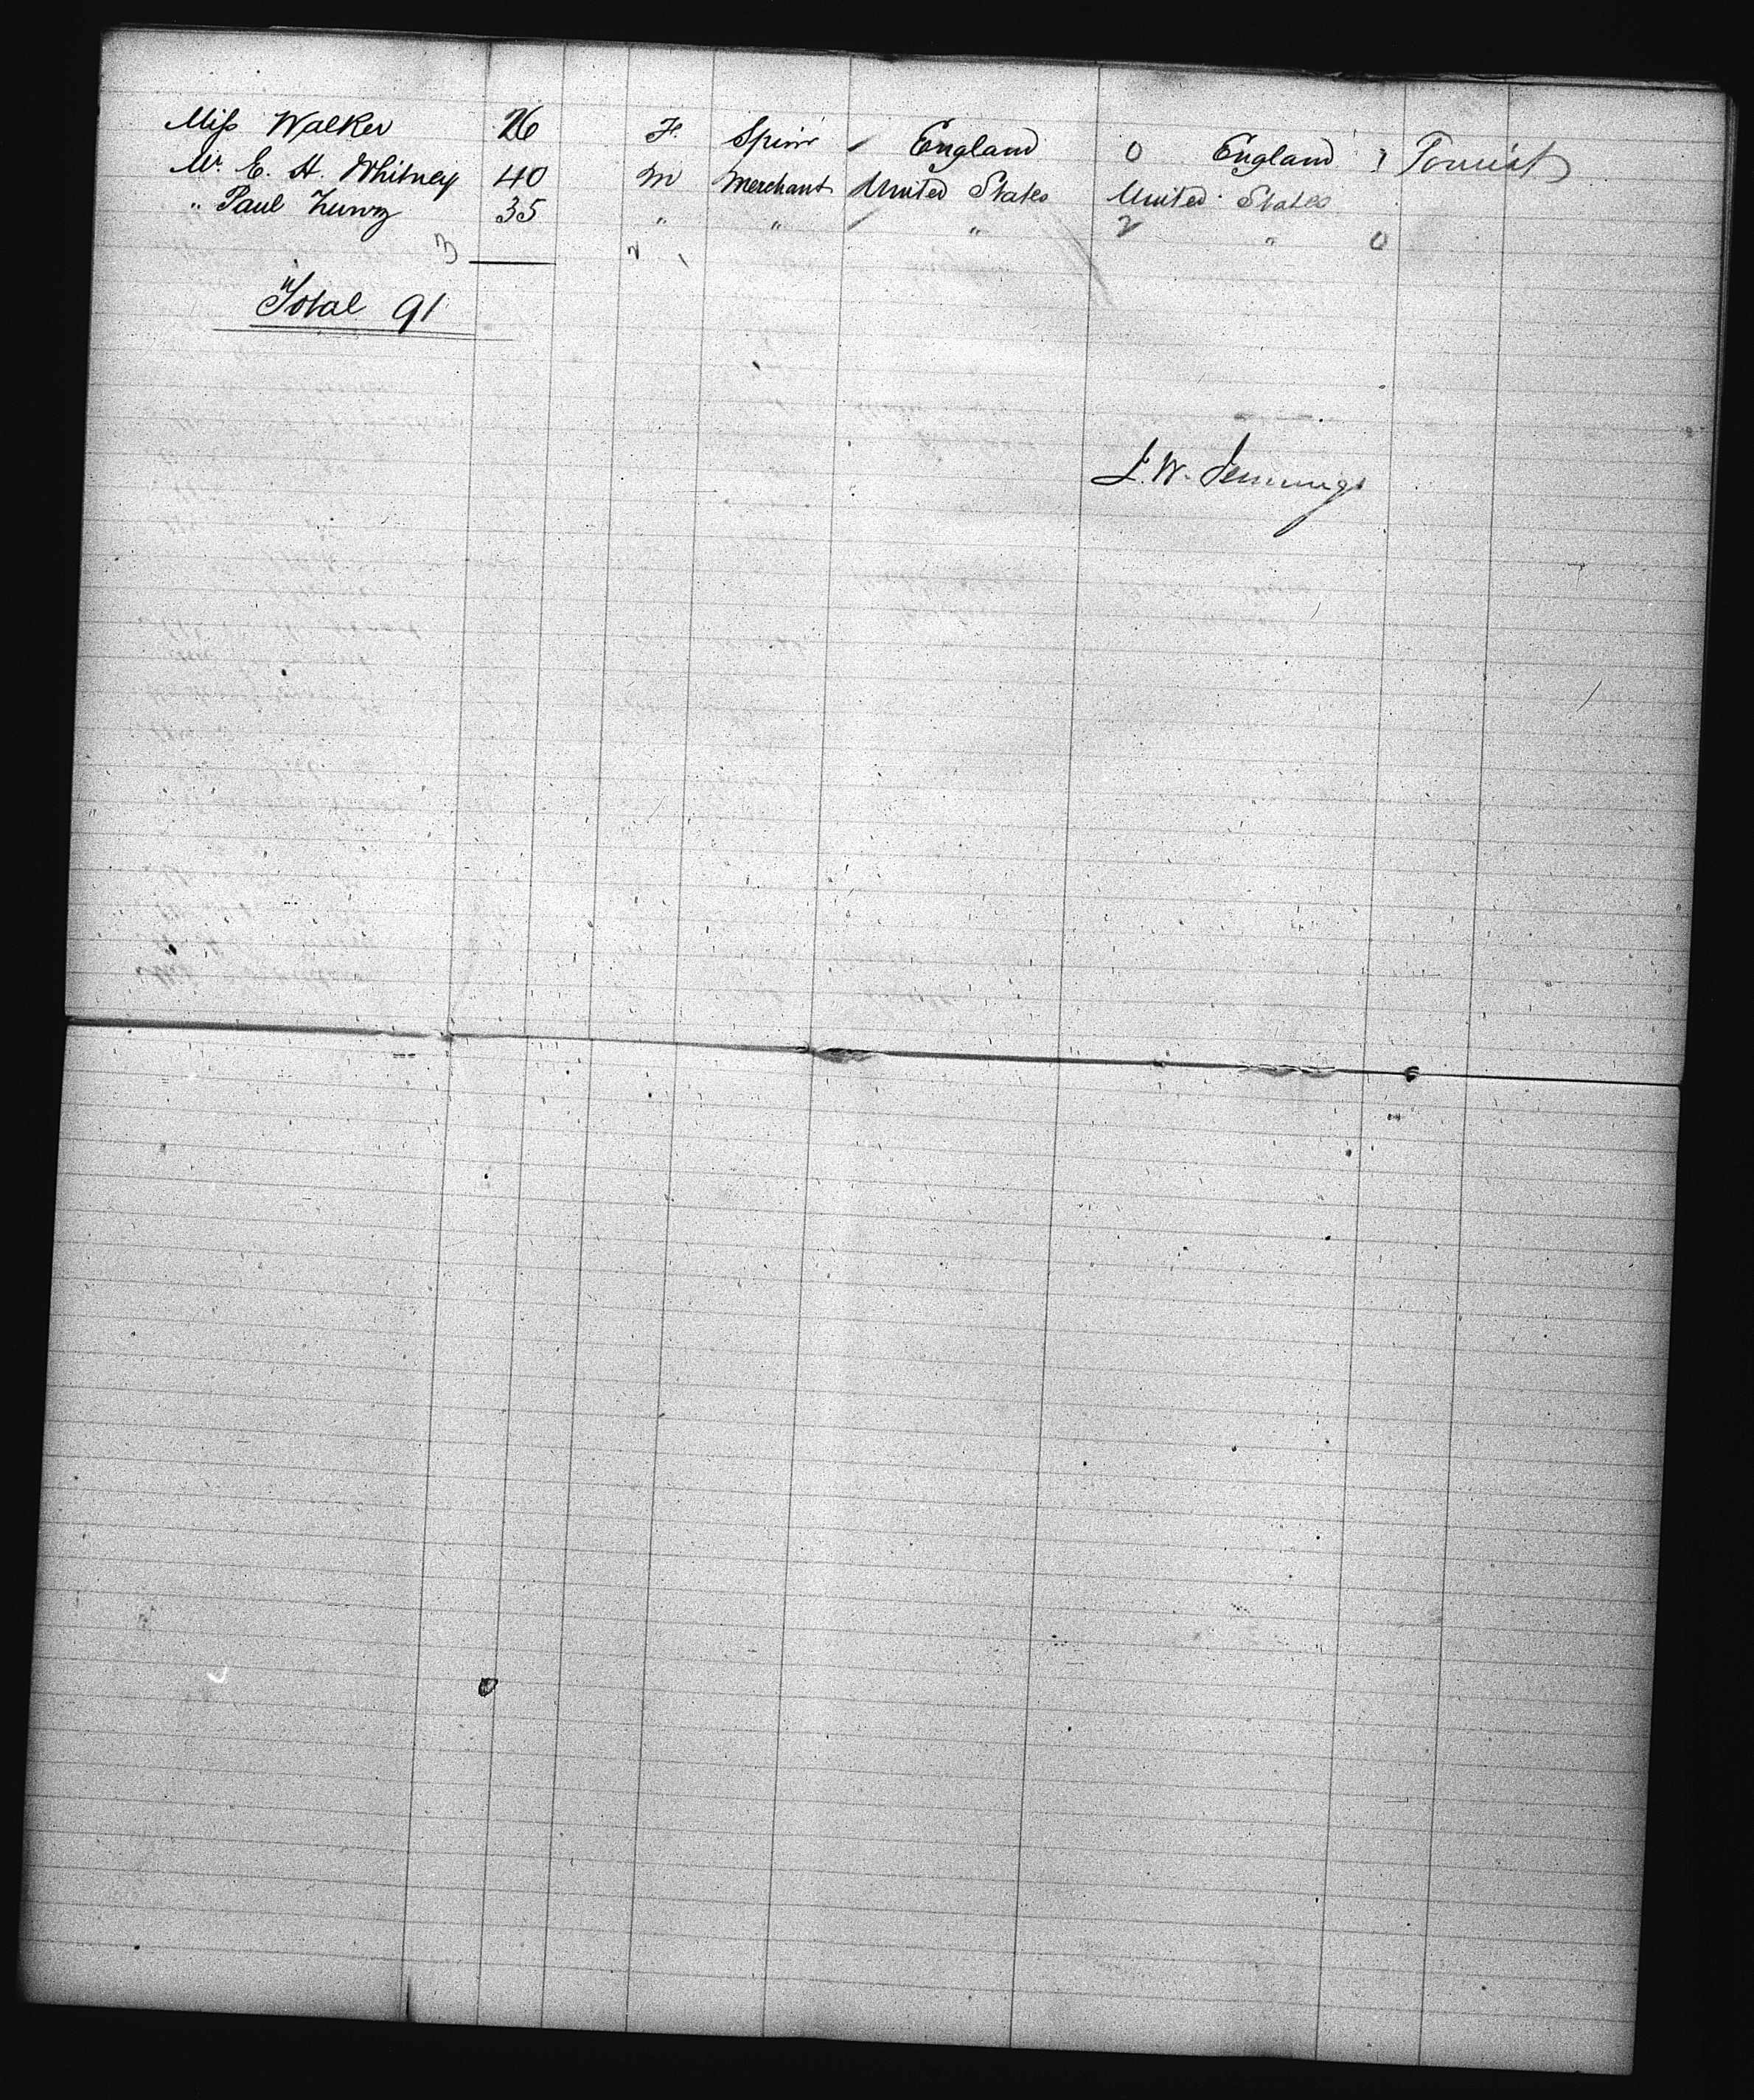 Miss Walker 26 F. Spinr England 0 England 1 Tourist
Mr. E. H. Whitney 40 M Merchant United States United States
" Paul 35 " " " 2 " 0
3 2 1
Total 91
L. W. Jennings